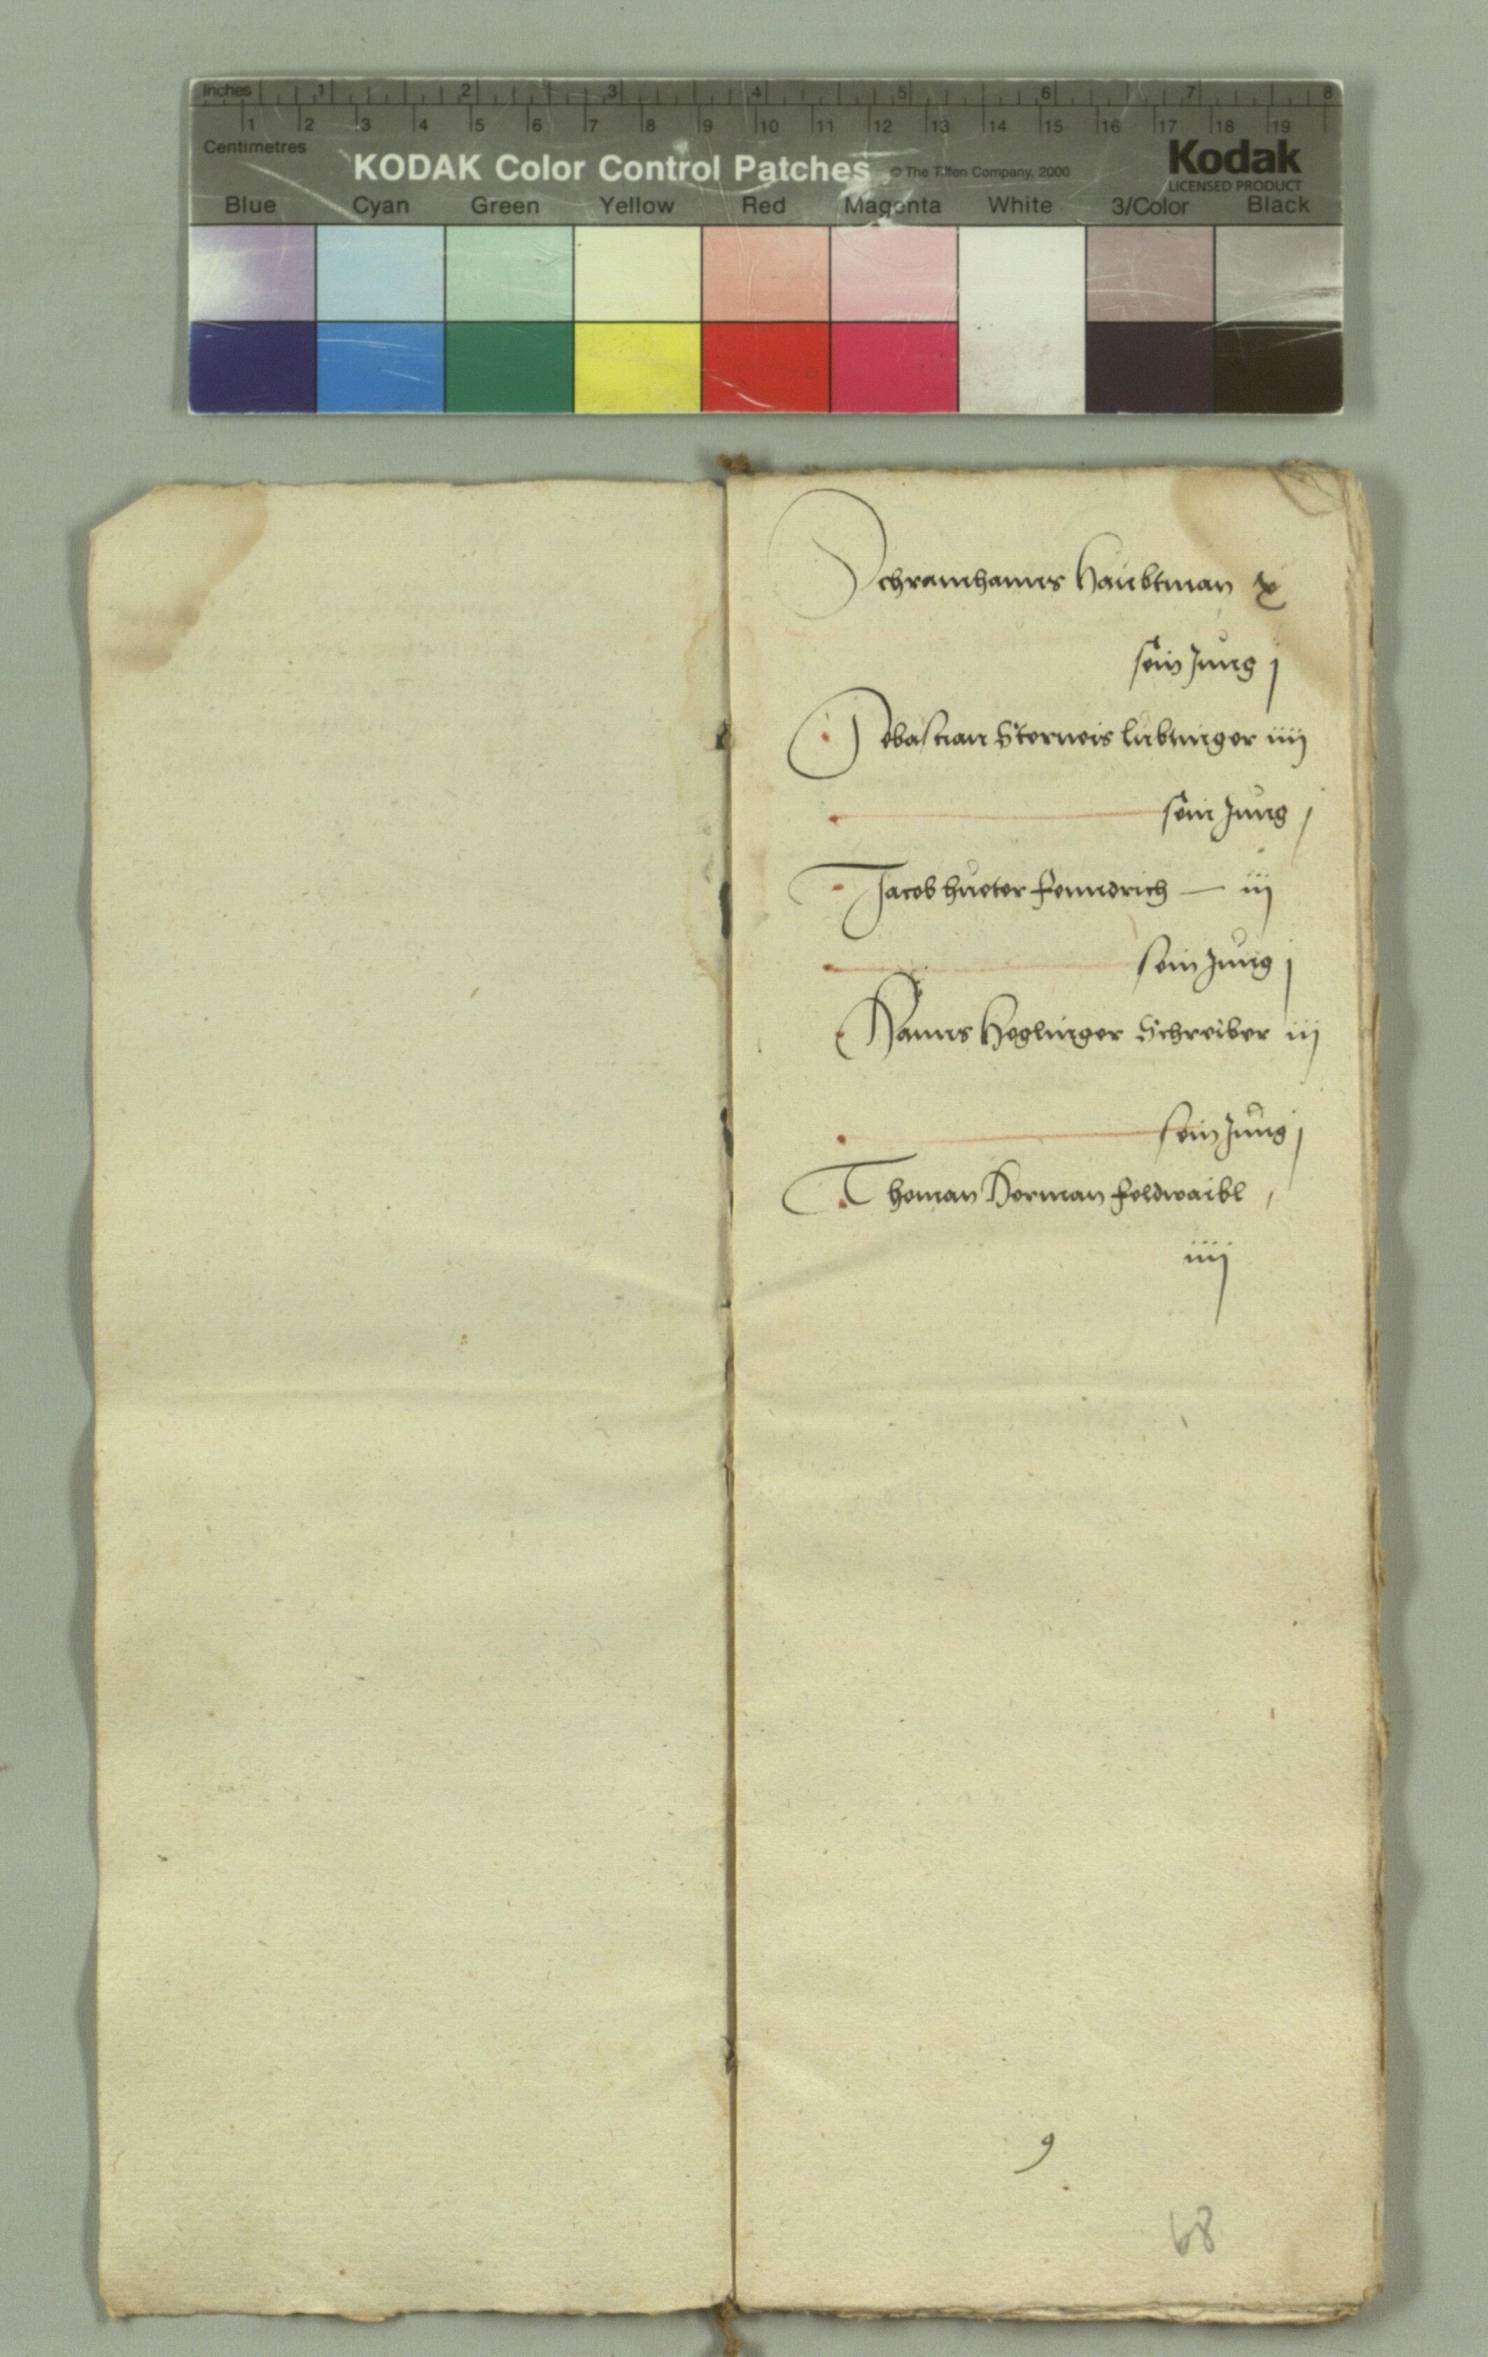 Inches 1 2 3 4 5 6 7 8
1 2 3 4 5 6 7 8 9 10 11 12 13 14 15 16 17 18 19
Centimetres
KODAK Color Control Patches © The Tiffen Company, 2000 Kodak
LICENSED PRODUCT
Blue Cyan Green Yellow Red Magenta White 3/Color Black
Schramhanns Haubtman x
sein Jung j
Sebastian lutinger iiij
sein Jung j
Jacob hueter Fenndrich — iij
sein Jung j
Hanns Heglinger Schreiber iij
sein Jung j
Thoman Herman Feldwaibl
iiij
9
68